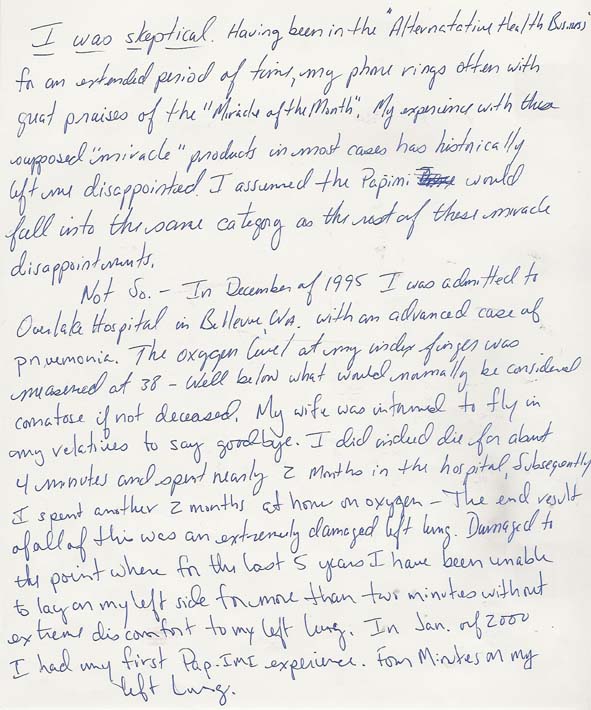 I was skeptical. Having been in the "Alternatative Health Business"
for an extended period of time, my phone rings often with
great praises of the "Miracle of the Month". My experience with these
supposed "miracle" products in most cases has historically
left me disappointed. I assumed the Papimi would
fall into the same category as the rest of these miracle
disappointments.
Not So. - In December of 1995 I was admitted to
Overlake Hospital in Bellevue, WA. with an advanced case of
pnuemonia. The oxygen level at my index finger was
measured at 38 - Well below what would normally be considered
comatose if not deceased. My wife was informed to fly in
any relatives to say goodbye. I did indeed die for about
4 minutes and spent nearly 2 months in the hospital, Subsequently
I spent another 2 months at home on oxygen - The end result
of all of this was an extremely damaged left lung. Damaged to
the point where for the last 5 years I have been unable
to lay on my left side for more than two minutes without
extreme discomfort to my left lung. In Jan. of 2000
I had my first Pap-IMI experience. Four Minutes on my
left Lung.